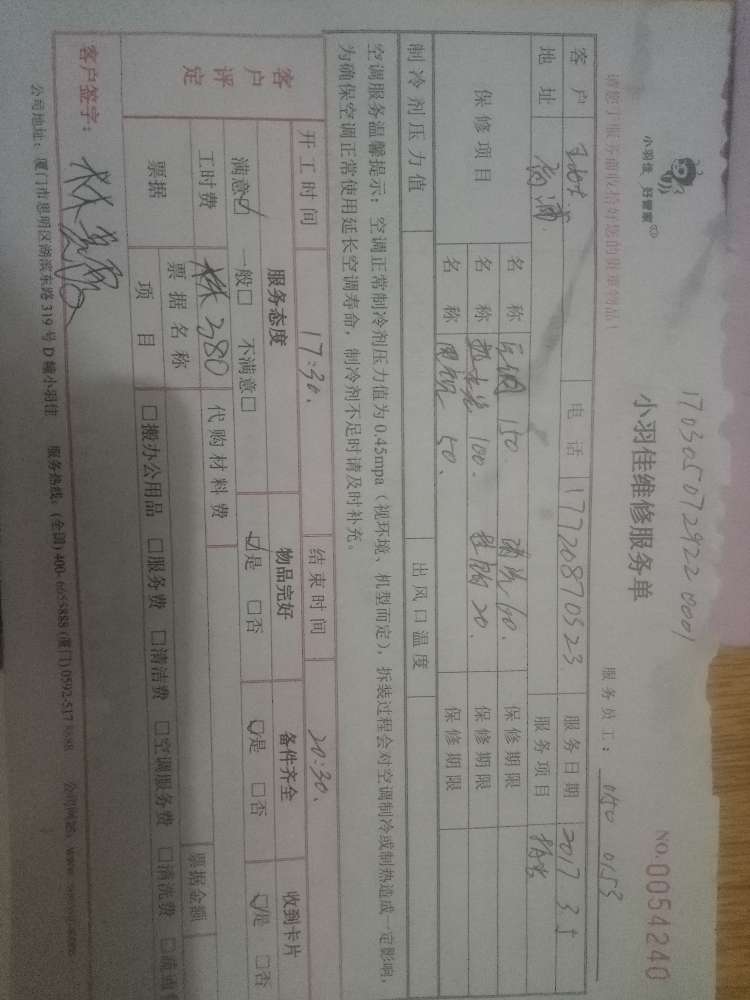 17030507292200001
小羽佳 好管家
小羽佳维修服务单
NO.0054240
请您于服务前收拾好您的贵重物品!
服务员工: 0150 0153
客户 电话 17720870523 服务日期 2017 3 5
地址 服务项目
保修项目 名称 150 清洗60. 保修期限
名称 100. 20. 保修期限
名称 50. 保修期限
制冷剂压力值 出风口温度
空调服务温馨提示:空调正常制冷剂压力值为0.45mpa(视环境、机型而定),拆装过程会对空调制冷或制热造成一定影响,
为确保空调正常使用延长空调寿命,制冷剂不足时请及时补充。
开工时间 17:30. 结束时间 20:30.
客户评定 服务态度 物品完好 备件齐全 收到卡片
满意☑ 一般□ 不满意□ ☑是 □否 ☑是 □否 ☑是 □否
工时费 380 代购材料费
票据 票据名称 票据金额
项目 □搬办公用品 □服务费 □清洁费 □空调服务费 □清洗费
客户签字:
公司地址:厦门市思明区湖滨东路319号D幢小羽佳 服务热线:(全国)400-6655888(厦门)0592-5178888 公司网站: